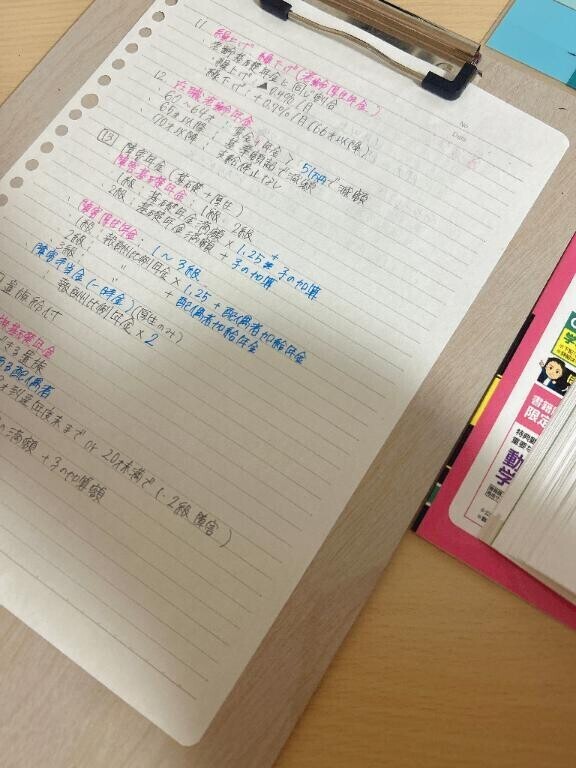 No.
Date
11. 繰上げ・繰下げ(老齢厚生年金)
老齢基礎年金と同じ割合
繰上げ：▲0.4%/月
繰下げ：+0.7%/月(66才以降)
12. 在職老齢年金
60〜64才：賃金+年金>51万で減額
65才以降：基準額超で減額
70才以降：支給停止なし
13 障害年金(基礎+厚生)
障害基礎年金：1級、2級
1級：基礎年金満額×1.25+子の加算
2級：基礎年金満額+子の加算
・障害厚生年金：1〜3級
1級：報酬比例年金×1.25+配偶者加給年金
2級：〃+配偶者加給年金
3級：〃
・障害手当金(一時金)(厚生のみ)
：報酬比例年金×2
遺族給付
基礎年金
きる遺族
ある配偶者
才到達年度末まで or 20才未満で1・2級障害)
の満額+子の加算額
書籍
限定
特典
重要
動
学